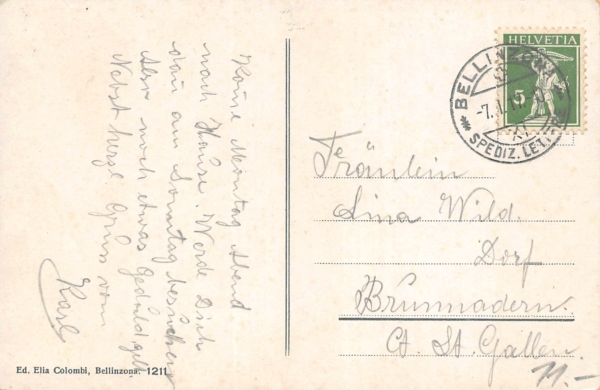 Komme Montag Abend
nach Hause. Werde Dich
dan am Sonntag besuchen
Also noch etwas Geduld gel.
Nebst herzl. Gruss von
Karl
HELVETIA
5
BELLINZONA
-7.
SPEDIZ. LETT.
Fräulein
Lina Wild.
Dorf
Brunnadern.
Ct. St. Gallen.
11.—
Ed. Elia Colombi, Bellinzona. 1211